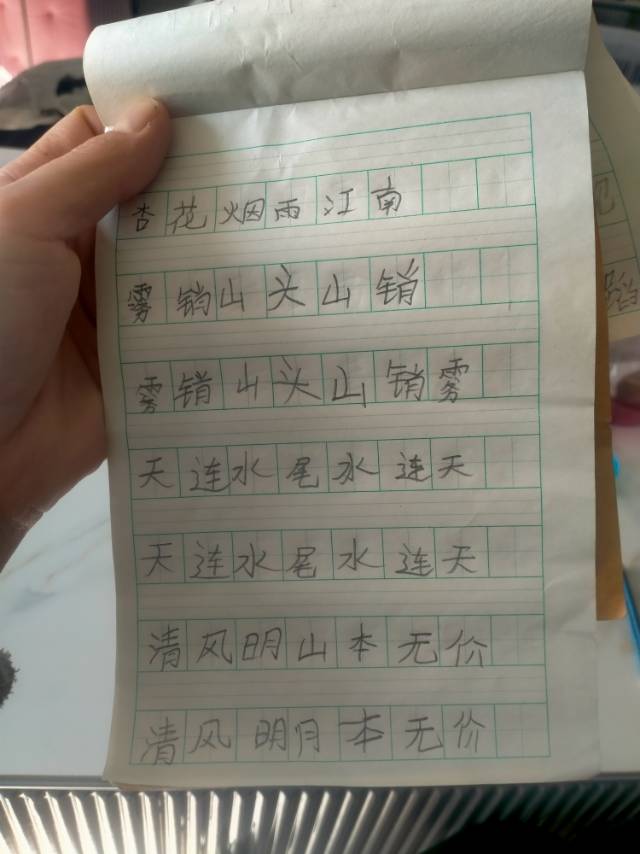 杏花烟雨江南
雾销山头山销
雾销山头山销雾
天连水尾水连天
天连水尾水连天
清风明山本无价
清风明月本无价